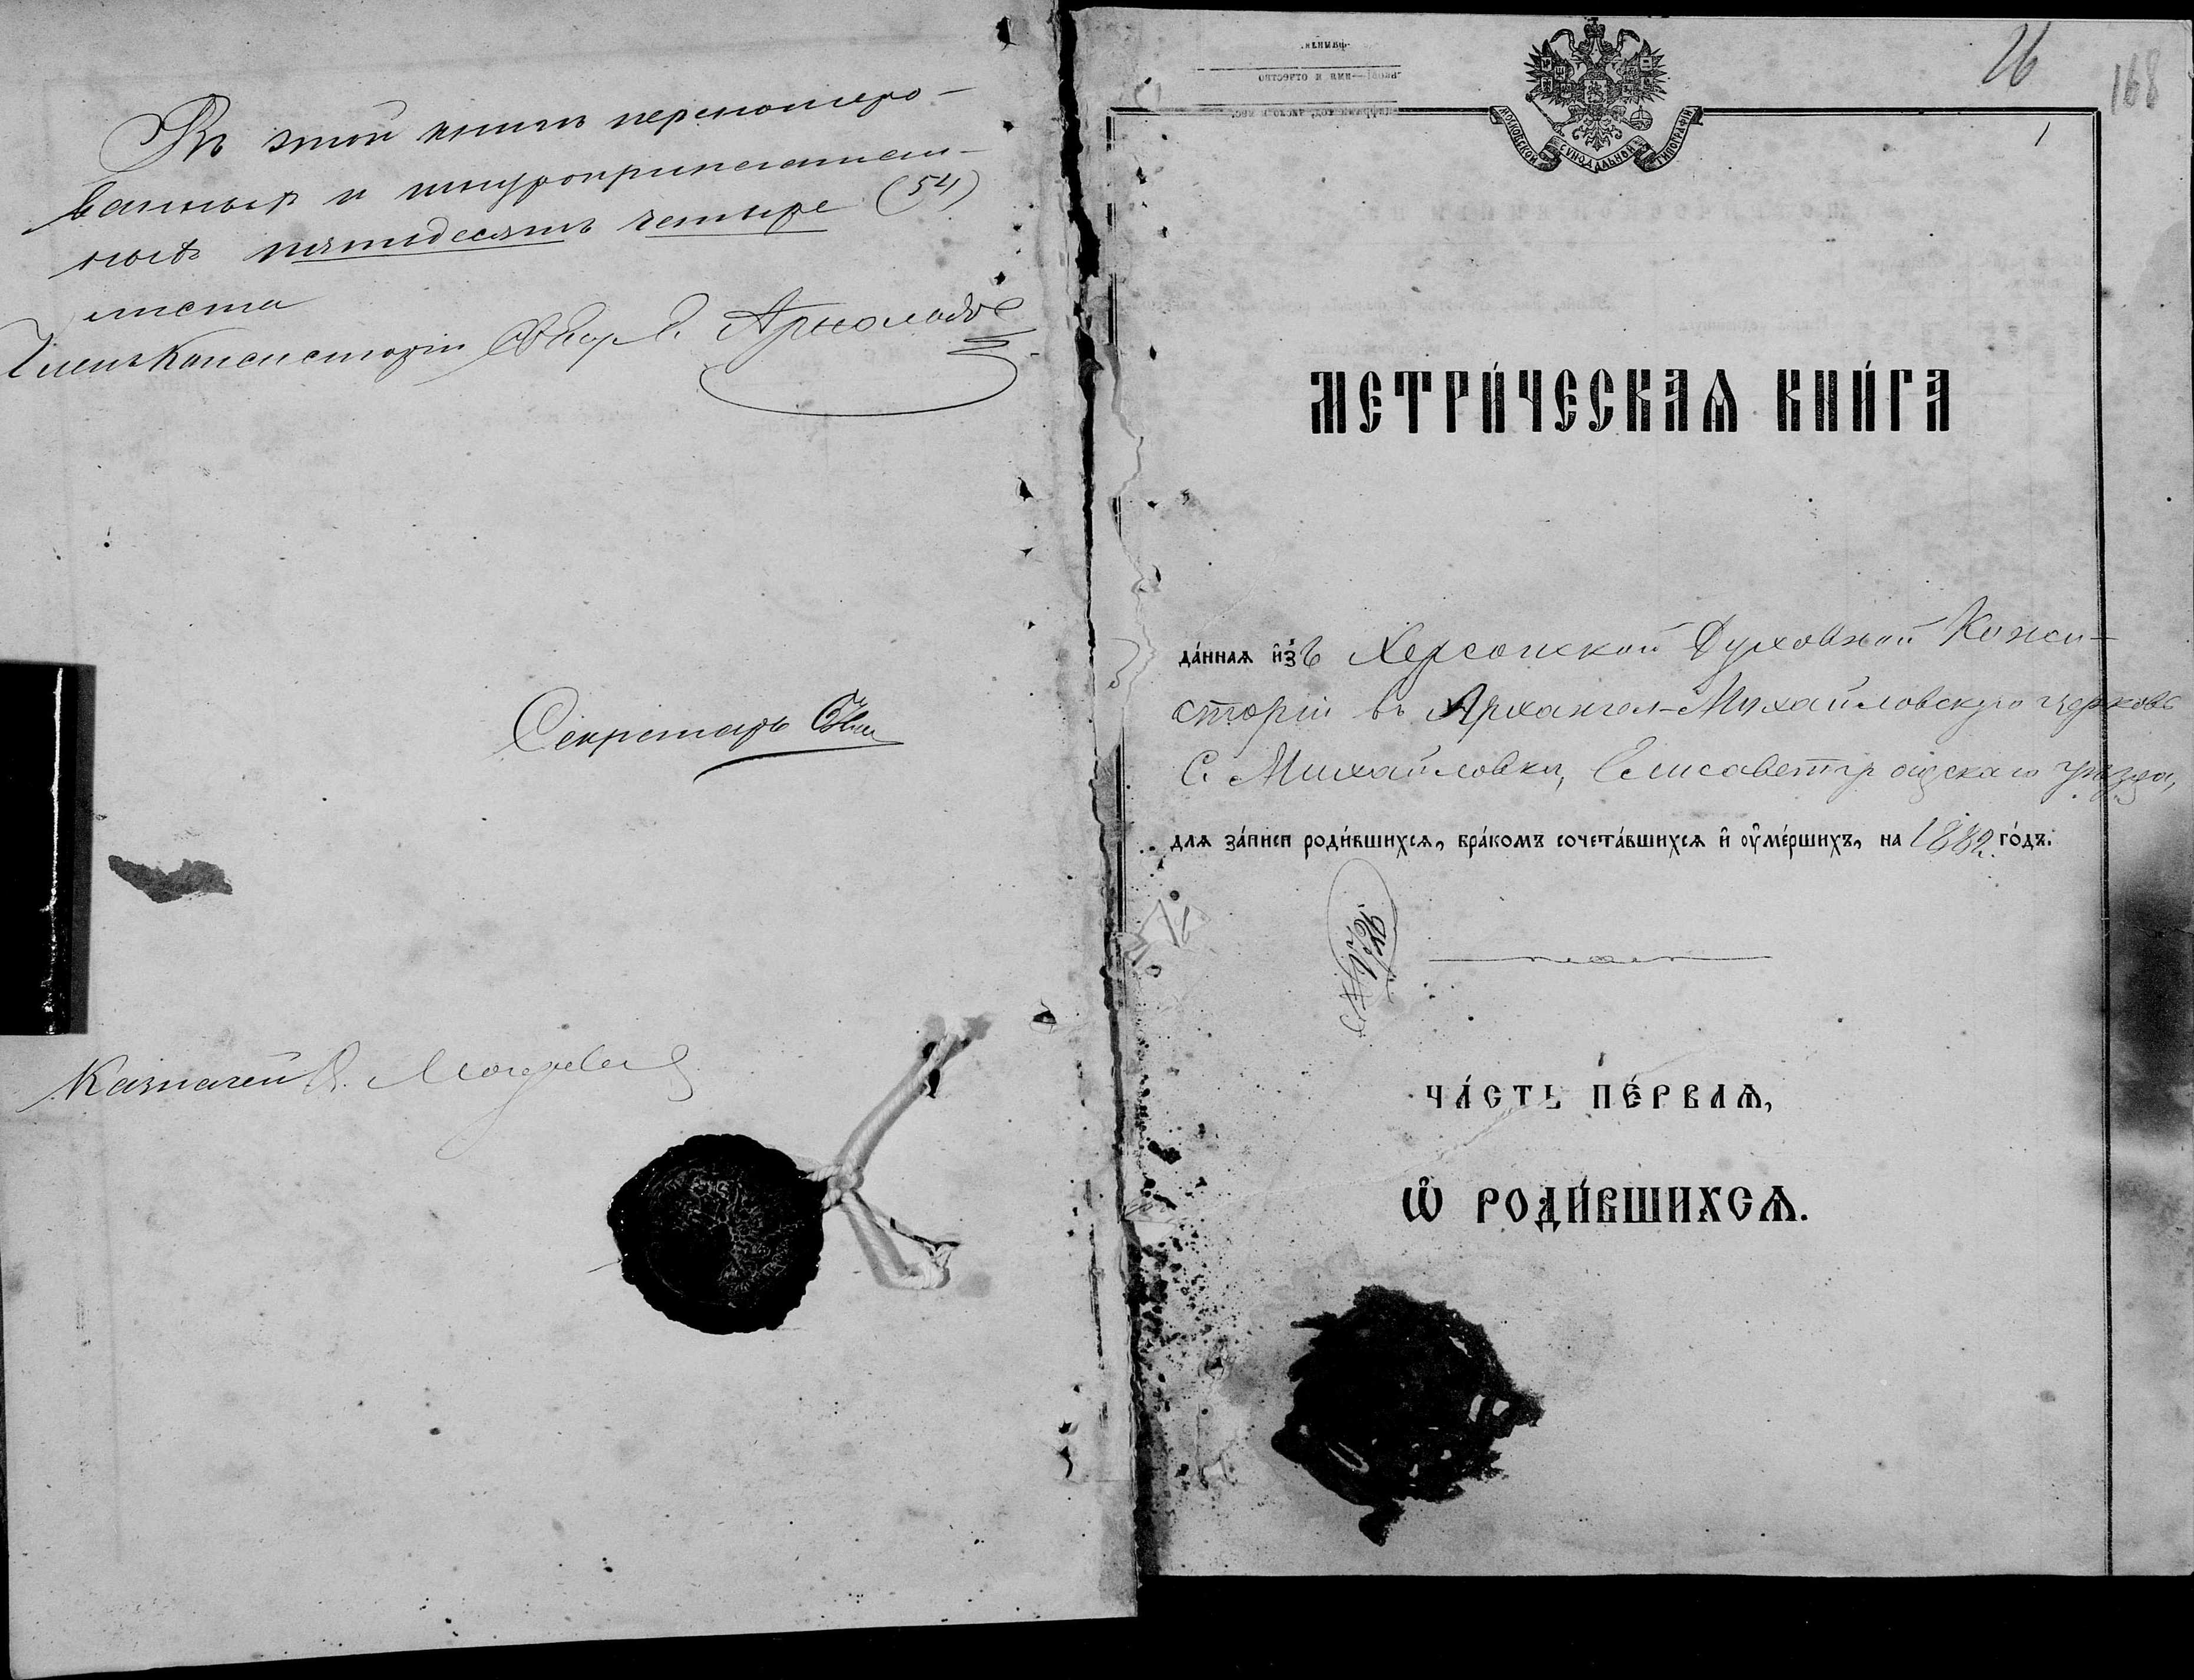 Въ этой книгѣ перенумеро-
ванныхъ и шнуроприпечатан-
ныхъ пятьдесятъ четыре (54)
листа
Членъ Консисторіи
Секретарь
Казначей
26
168
1
МОСКОВСКОЙ СѴНОДАЛЬНОЙ ТИПОГРАФІИ
МЕТРИ́ЧЕСКАѦ КНИ́ГА
да́ннаѧ и҆зъ Херсонской Духовной Конси-
сторіи въ Архангел-Михайловскую церковь
С. Михайловки, Елисаветградскаго уѣзда,
длѧ за́писи роди́вшихсѧ, бра́комъ сочета́вшихсѧ и҆ ѹ҆ме́ршихъ, на 1882 го́дъ.
ЧА́СТЬ ПЕ́РВАѦ,
Ѡ҆ РОДИ́ВШИХСѦ.